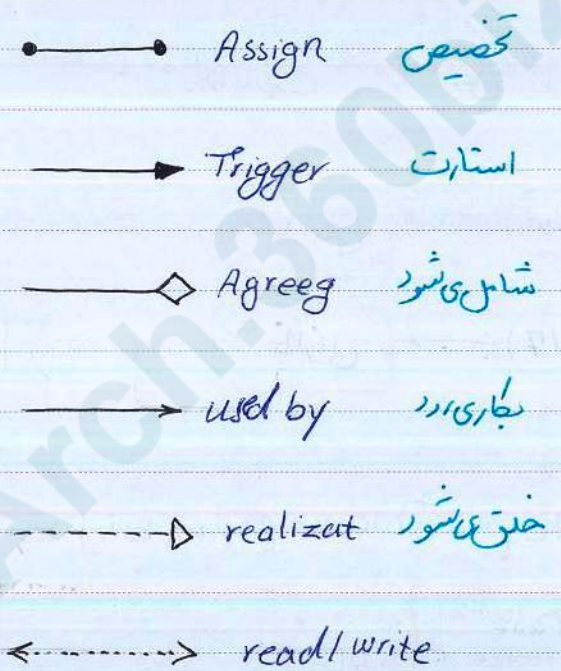 Assign تخصیص
Trigger استارت
Agreeg شامل می شود
used by بکار می رود
realizat خلق می شود
read/write
Arch.360biz